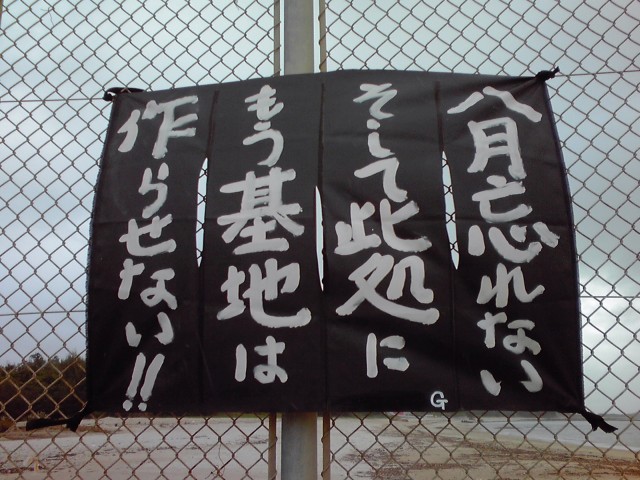 八月忘れない
そして此処に
もう基地は
作らせない!!
G